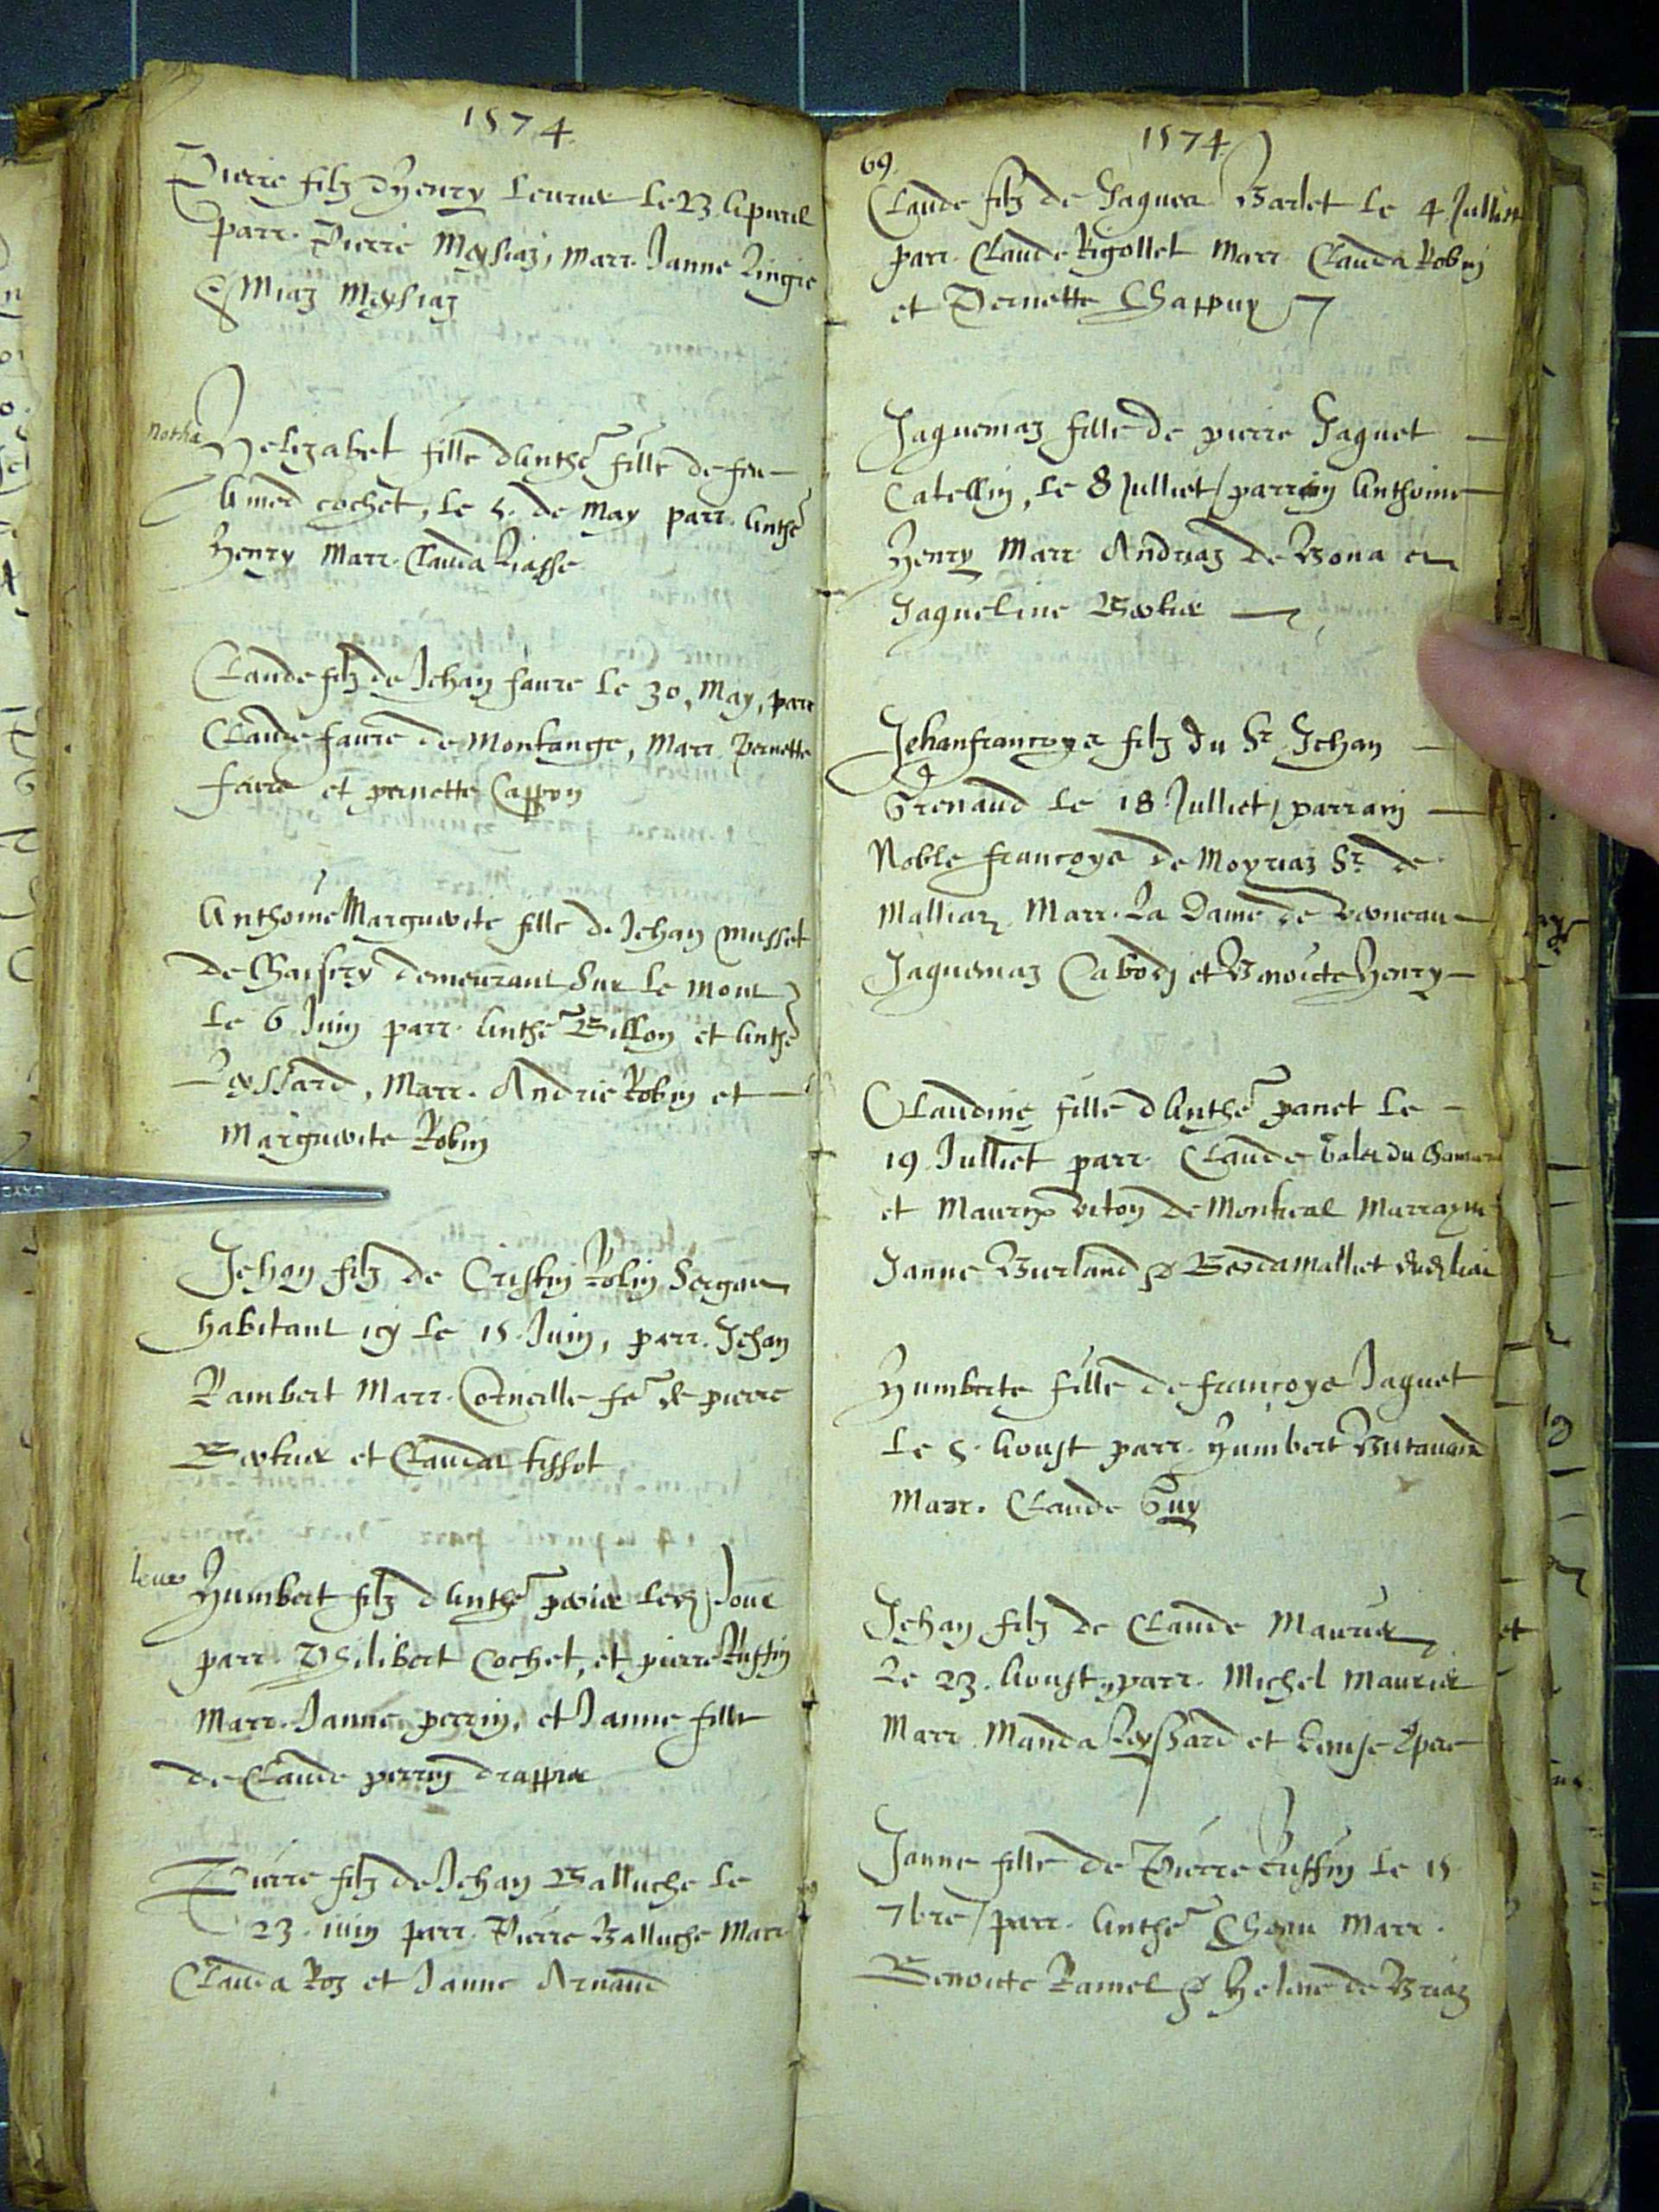 1574.
Pierre filz d'henry le 23 Apvril
parr. Pierre Meyliaz, marr. Janne
& Miaz Meyliaz
notha
Helizabet fille d'Anthe fille de feu
Amed cochet, le 5. de May parr. Anthe
Henry Marr. Clauda
Claude filz de Jehan faure le 30, May, parr
Claude faure de Montange, Marr. Pernette
faure et pernette Cappon
Anthoine Marguerite fille de Jehan Musset
de demeurant Sur le mont
le 6 Juin parr. Anthe Billon et Anthe
Leyssard, Marr. Andrie Robin et
Marguerite Robin
Jehan filz de Cristin Robin
habitant icy le 15. Juin, parr. Jehan
Rambert Marr. Corneille fe de pierre
et Clauda tissot
Humbert filz d'Anthe
parr. Philibert Cochet, et pierre Ruffin
Marr. Janne perrin, et Janne fille
de Claude perrin drappier
Pierre filz de Jehan Balluche le
23. iuin parr. Pierre Balluche Marr
Clauda Roz et Janne Arnaud
69.
1574
Claude filz de Jaques Barlet le 4 Julliet
parr. Claude Rigollet Marr. Clauda Robin
et Pernette Chappuy
Jaquemaz fille de pierre Jaquet
Catellin, le 8 Julliet / parrain Anthoine
Henry Marr Andreaz de Bona et
Jaqueline
Jehanfrancoys filz du Sr Jehan
Grenaud le 18 Julliet / parrain
Noble francoys de Moyriaz Sr de
Malliaz Marr. La Dame de
Jaquemaz Cabod et Benoicte Henry
Claudine fille d'Anthe panet le
19 Julliet parr. Claude du
et Maurys de Montreal Marrayne
Janne Burland &
Humberte fille de francoys Jaquet
le 5. Aoust parr. Humbert
Marr. Claude Guy
Jehan filz de Claude Maurier
Le 23. Aoust, parr. Michel Maurier
Marr. Manda Leyssard et
Janne fille de Pierre Ruffin le 15
7bre / parr. Anthe Marr.
Benoicte Ramel & Helene de Briaz